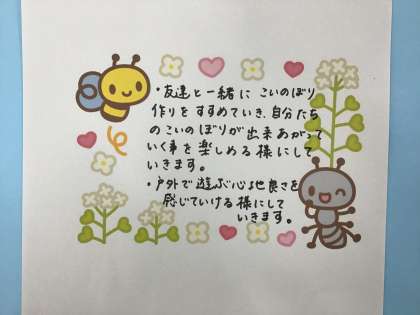 ・友達と一緒に こいのぼり
作りをすすめていき、自分たち
のこいのぼりが出来あがって
いく事を楽しめる様にして
いきます。
・戸外で遊ぶ心地良さを
感じていける様にして
いきます。